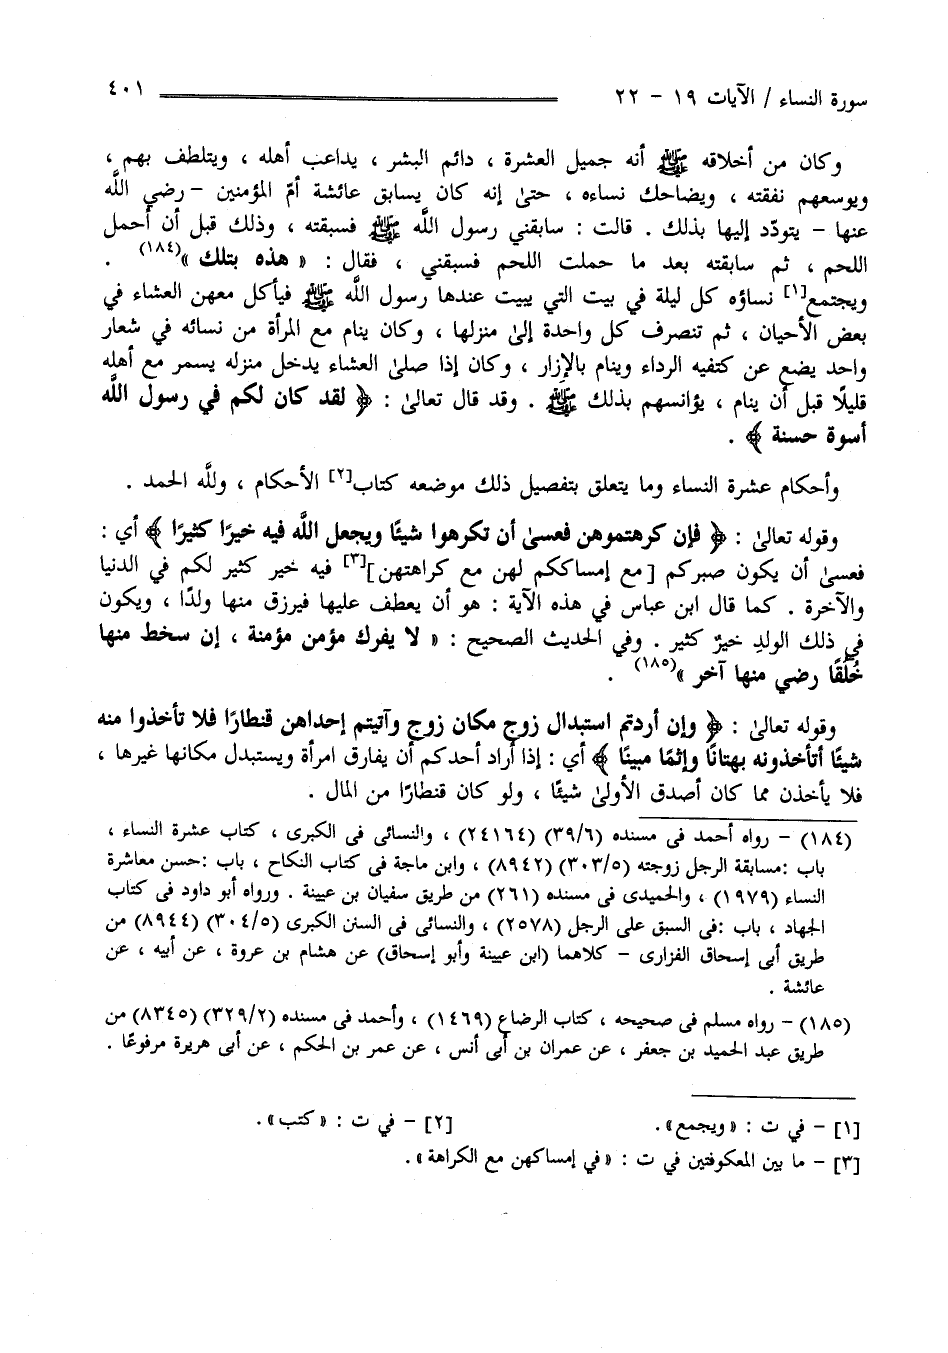 سورة النساء / الآيات ١٩ - ٢٢ ٤٠١
وكان من أخلاقه ﷺ أنه جميل العشرة ، دائم البشر ، يداعب أهله ، ويتلطف بهم ،
ويوسعهم نفقته ، ويضاحك نساءه ، حتىٰ إنه كان يسابق عائشة أمّ المؤمنين - رضي اللَّه
عنها - يتودّد إليها بذلك . قالت : سابقني رسول اللَّه ﷺ فسبقته ، وذلك قبل أن أحمل
اللحم ، ثم سابقته بعد ما حملت اللحم فسبقني ، فقال : « هذه بتلك »(١٨٤) .
ويجتمع[١] نساؤه كل ليلة في بيت التي يبيت عندها رسول اللَّه ﷺ فيأكل معهن العشاء في
بعض الأحيان ، ثم تنصرف كل واحدة إلىٰ منزلها ، وكان ينام مع المرأة من نسائه في شعار
واحد يضع عن كتفيه الرداء وينام بالإزار ، وكان إذا صلىٰ العشاء يدخل منزله يسمر مع أهله
قليلًا قبل أن ينام ، يؤانسهم بذلك ﷺ . وقد قال تعالىٰ : ﴿ لقد كان لكم في رسول اللَّه
أسوة حسنة ﴾ .
وأحكام عشرة النساء وما يتعلق بتفصيل ذلك موضعه كتاب[٢] الأحكام ، وللَّه الحمد .
وقوله تعالىٰ : ﴿ فإن كرهتموهن فعسىٰ أن تكرهوا شيئًا ويجعل اللَّه فيه خيرًا كثيرًا ﴾ أي :
فعسىٰ أن يكون صبركم [مع إمساككم لهن مع كراهتهن][٣] فيه خير كثير لكم في الدنيا
والآخرة . كما قال ابن عباس في هذه الآية : هو أن يعطف عليها فيرزق منها ولدًا ، ويكون
في ذلك الولدِ خيرٌ كثير . وفي الحديث الصحيح : « لا يفرك مؤمن مؤمنة ، إن سخط منها
خُلُقًا رضي منها آخر »(١٨٥) .
وقوله تعالىٰ : ﴿ وإن أردتم استبدال زوج مكان زوج وآتيتم إحداهن قنطارًا فلا تأخذوا منه
شيئًا أتأخذونه بهتانًا وإثمًا مبينًا ﴾ أي : إذا أراد أحدكم أن يفارق امرأة ويستبدل مكانها غيرها ،
فلا يأخذن مما كان أصدق الأولىٰ شيئًا ، ولو كان قنطارًا من المال .
(١٨٤) - رواه أحمد فى مسنده (٣٩/٦) (٢٤١٦٤) ، والنسائى فى الكبرى ، كتاب عشرة النساء ،
باب :مسابقة الرجل زوجته (٣٠٣/٥) (٨٩٤٢) ، وابن ماجة فى كتاب النكاح ، باب :حسن معاشرة
النساء (١٩٧٩) ، والحميدى فى مسنده (٢٦١) من طريق سفيان بن عيينة . ورواه أبو داود فى كتاب
الجهاد ، باب :فى السبق على الرجل (٢٥٧٨) ، والنسائى فى السنن الكبرى (٣٠٤/٥) (٨٩٤٤) من
طريق أبى إسحاق الفزارى - كلاهما (ابن عيينة وأبو إسحاق) عن هشام بن عروة ، عن أبيه ، عن
عائشة .
(١٨٥) - رواه مسلم فى صحيحه ، كتاب الرضاع (١٤٦٩) ، وأحمد فى مسنده (٣٢٩/٢) (٨٣٤٥) من
طريق عبد الحميد بن جعفر ، عن عمران بن أبى أنس ، عن عمر بن الحكم ، عن أبى هريرة مرفوعًا .
[١] - في ت : «ويجمع». [٢] - في ت : «كتب».
[٣] - ما بين المعكوفتين في ت : «في إمساكهن مع الكراهة».